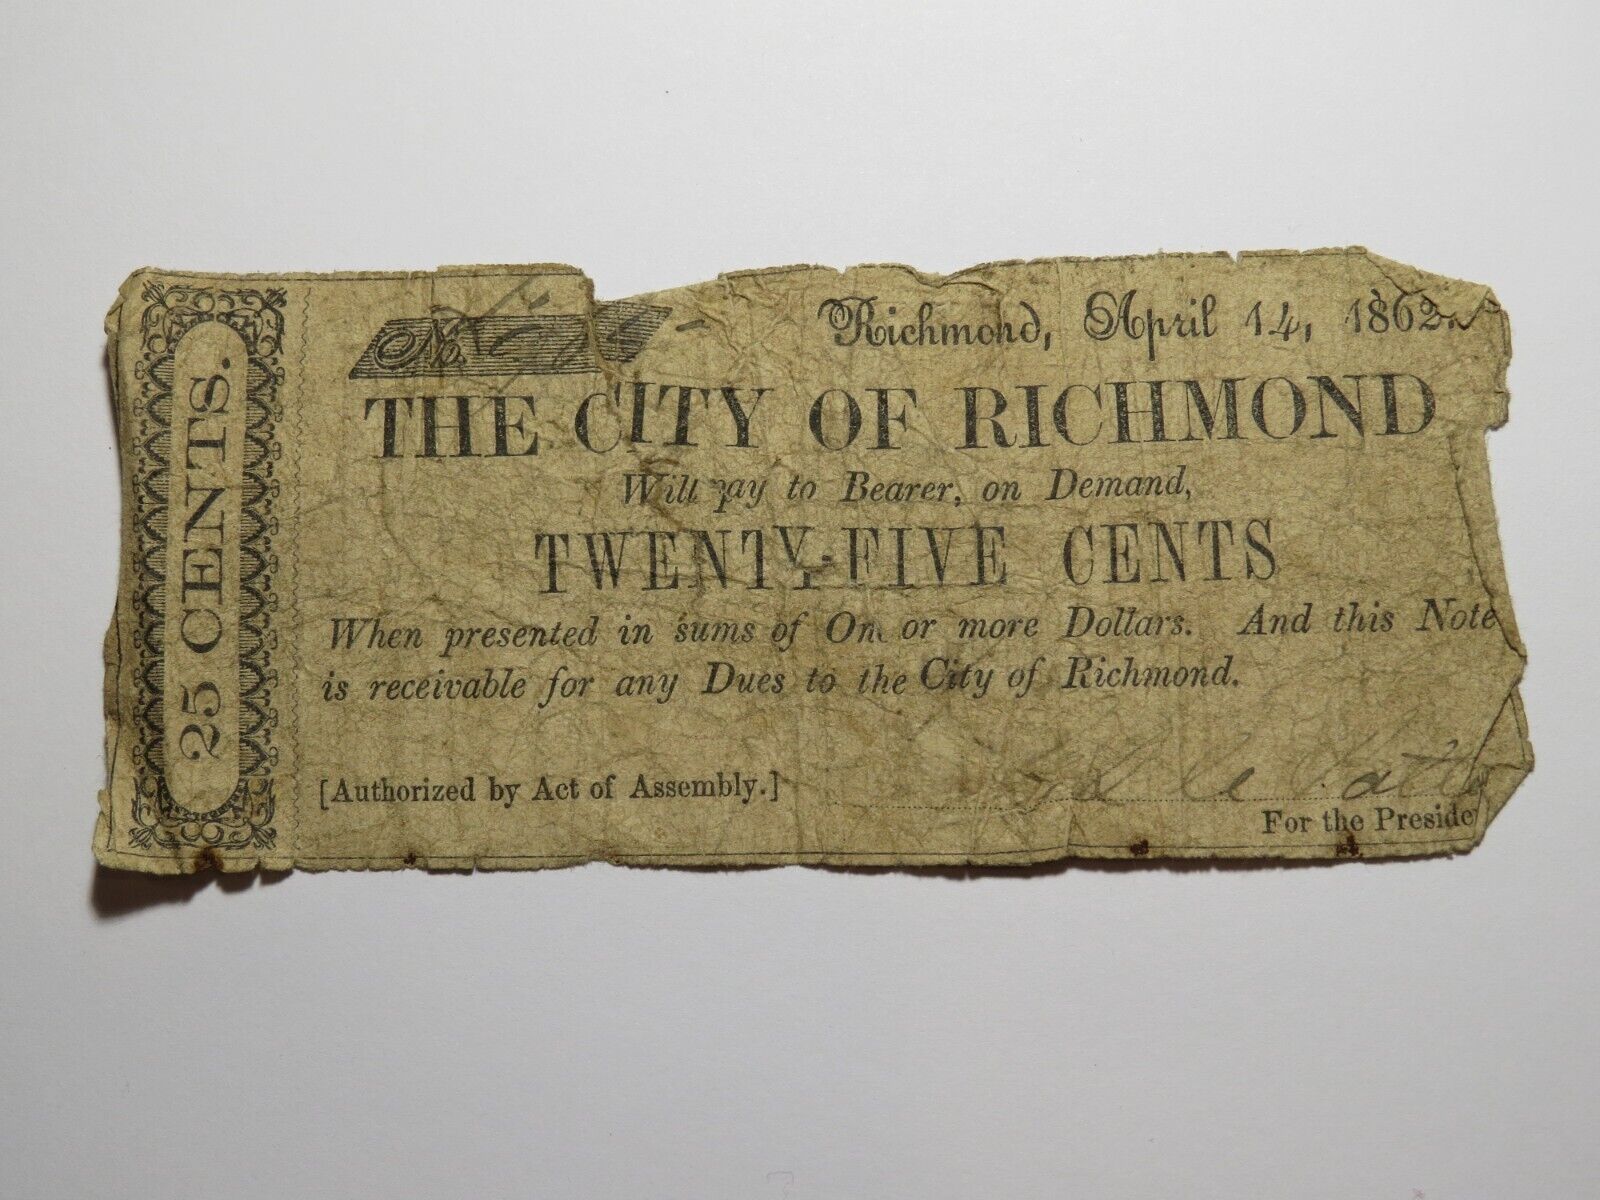 25 CENTS.
No.
Richmond, April 14, 1862.
THE CITY OF RICHMOND
Will pay to Bearer, on Demand,
TWENTY-FIVE CENTS
When presented in sums of One or more Dollars. And this Note
is receivable for any Dues to the City of Richmond.
[Authorized by Act of Assembly.]
For the Preside